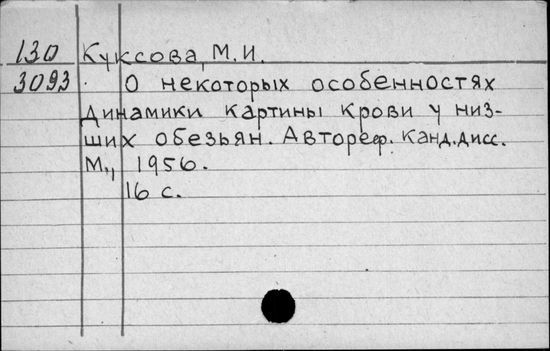 130 Куксова, М.И.
3093 О некоторых особенностях
динамики картины крови у низ-
ших обезьян. Автореф. канд. дисс.
М., 1956.
16 с.